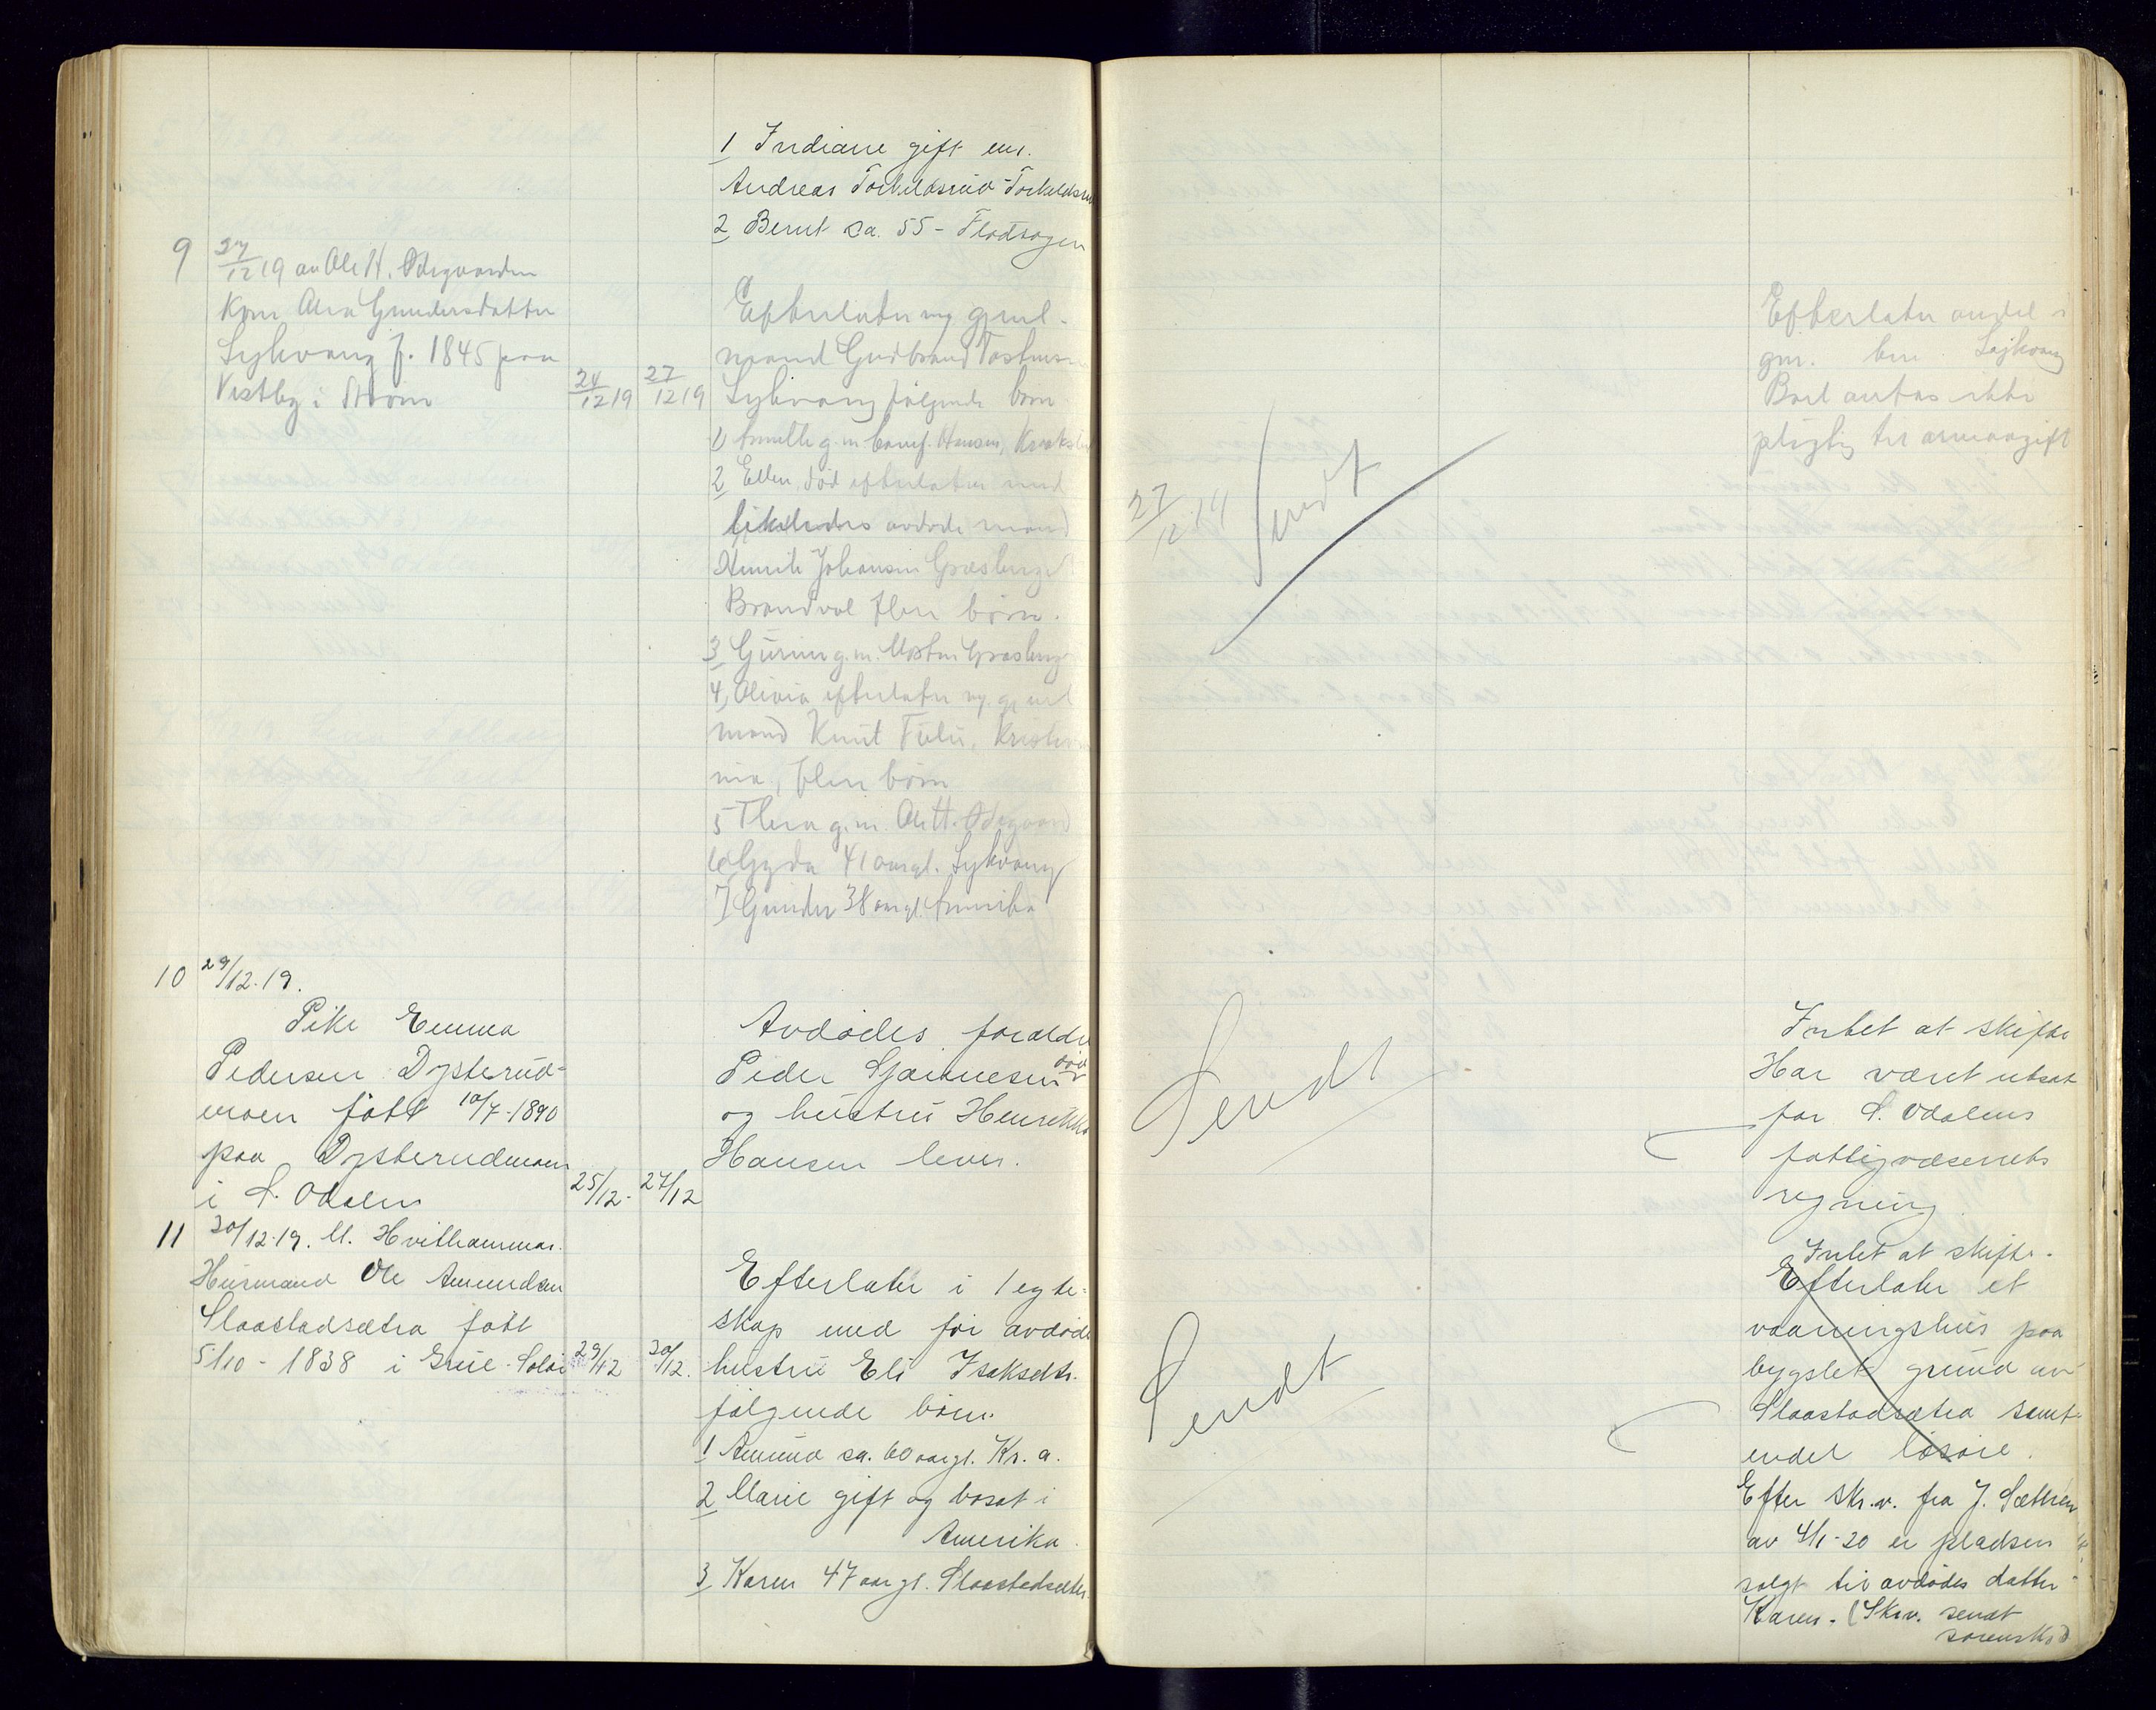 1 Indiane gift enr.
Andreas Torkeldsrud Torkeldsru
2 Bernt ca. 55 - Flodsagen
9 27/12 19 av Ole H. Ødegaarden
Kone Gundersdatter
Sykvang f. 1845 paa
Vestby i Strøm
24/12 19 27/12 19
Efterlater mg gjenl.
mand Gudbrand
Sykvang følgende børn
1) g. m. Hansen,
2 Ellen, død efterlater med
likeledes avdøde mand
Henrik Johansen Græsberget
Brandval flere børn.
3 Gurine g. m. Græsberg
4, Olivia efterlater mg. gjenl
mand Knut Tulu, Kristia
nia, flere børn
5 Thea g. m. Ole H. Ødegaard
6 Gyda 41 aargl. Sykvang
7) Gunder 38 aargl. Amerika
27/12 19 Sendt
Efterlater andel i
gnr. bnr. Sykvang
Boet antas ikke
pligtig til arveavgift
10 29/12.19.
Pike Emma
Pedersen Dysterud-
moen født 10/7-1890
paa Dysterudmoen
i S. Odalen
25/12. 27/12
Avdødes forældre
Peder død
og hustru Henrikke
Hansen lever.
Sendt
Intet at skifte
Har været utsat
for S. Odalens
fattigvæsenets
regning
11 30/12.19. M. Hvithammar.
Husmand Ole Amundsen
Slaastadsætra født
5/10 - 1838 i Grue-Solør
29/12 30/12.
Efterlater i 1 egte-
skap med før avdøde
hustru Eli Isaksdtr.
følgende børn.
1 Amund ca. 60 aargl. Kr. a.
2 Marie gift og bosat i
Amerika.
3 Karen 47 aargl. Slaastadsæter
Sendt
Intet at skifte.
Efterlater et
vaaningshus paa
bygslet grund av
Slaastadsætra samt
endel løsøre.
Efter skr.v. fra J. Sætren
av 4/1-20 er pladsen
solgt til avdødes datter
Karen. (Skrv. sendt
sorenskr)